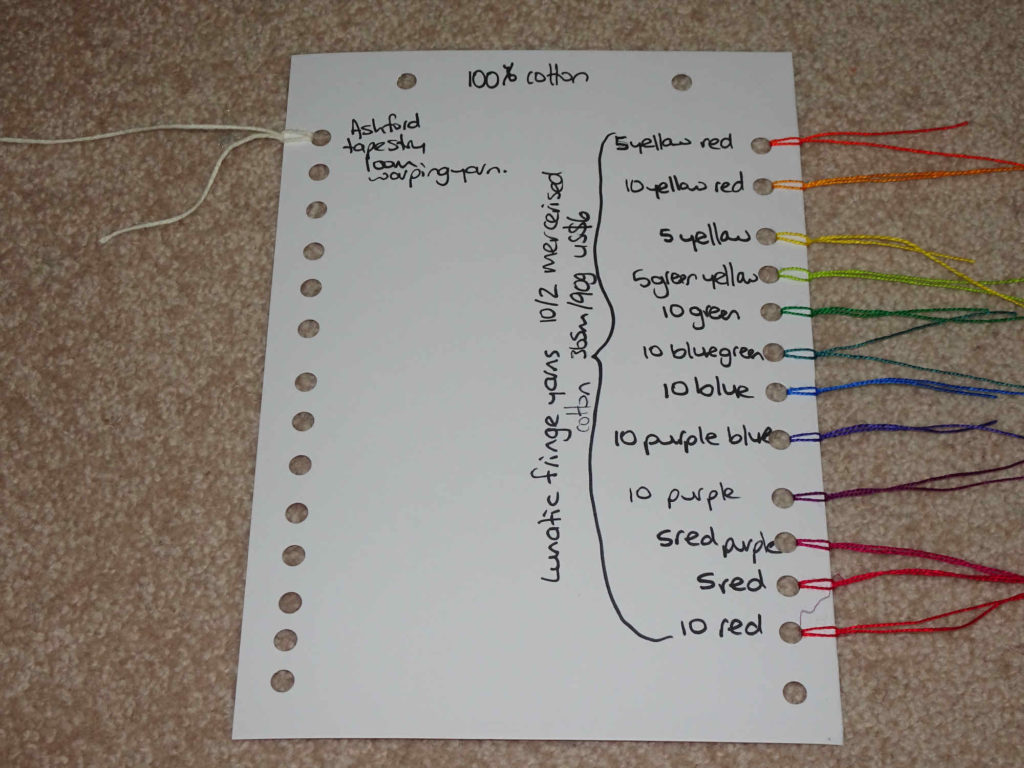 100% cotton
Ashford
tapestry
loom
warping yarn.
Lunatic fringe yarns 10/2 mercerised
cotton 365m/90g US$16
5 yellow red
10 yellow red
5 yellow
5 green yellow
10 green
10 blue green
10 blue
10 purple blue
10 purple
5 red purple
5 red
10 red